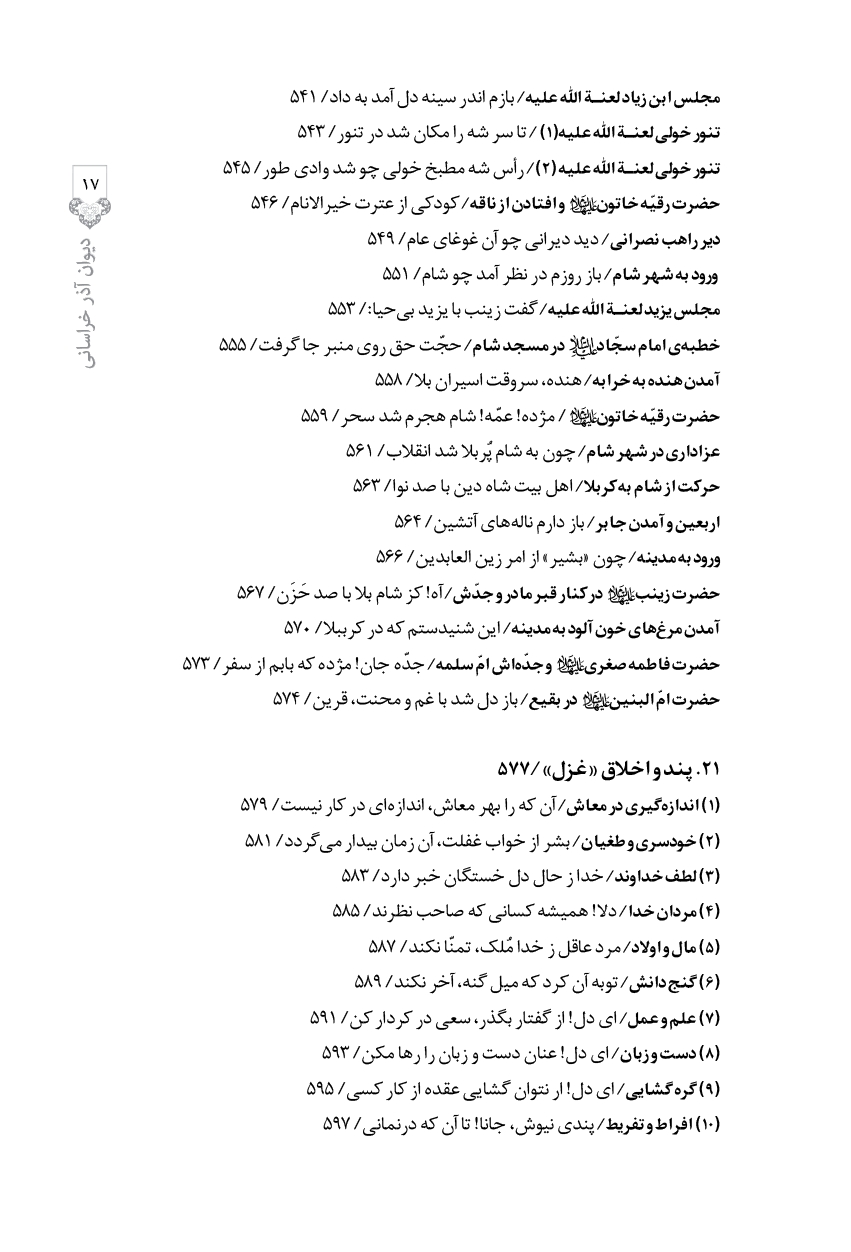 ۱۷
دیوان آذر خراسانی
مجلس ابن زیاد لعنة الله علیه/ بازم اندر سینه دل آمد به داد/ ۵۴۱
تنور خولی لعنة الله علیه(۱) / تا سر شه را مکان شد در تنور/ ۵۴۳
تنور خولی لعنة الله علیه (۲)/ رأس شه مطبخ خولی چو شد وادی طور/ ۵۴۵
حضرت رقیّه خاتون علیها السلام و افتادن از ناقه/ کودکی از عترت خیرالانام/ ۵۴۶
دیر راهب نصرانی/ دید دیرانی چو آن غوغای عام/ ۵۴۹
ورود به شهر شام/ باز روزم در نظر آمد چو شام/ ۵۵۱
مجلس یزید لعنة الله علیه/ گفت زینب با یزید بی‌حیا:/ ۵۵۳
خطبه‌ی امام سجّاد علیه السلام در مسجد شام/ حجّت حق روی منبر جا گرفت/ ۵۵۵
آمدن هنده به خرابه/ هنده، سروقت اسیران بلا/ ۵۵۸
حضرت رقیّه خاتون علیها السلام / مژده! عمّه! شام هجرم شد سحر/ ۵۵۹
عزاداری در شهر شام/ چون به شام پُربلا شد انقلاب/ ۵۶۱
حرکت از شام به کربلا/ اهل بیت شاه دین با صد نوا/ ۵۶۳
اربعین و آمدن جابر/ باز دارم ناله‌های آتشین/ ۵۶۴
ورود به مدینه/ چون «بشیر» از امر زین العابدین/ ۵۶۶
حضرت زینب علیها السلام در کنار قبر مادر و جدّش/ آه! کز شام بلا با صد حَزَن/ ۵۶۷
آمدن مرغ‌های خون آلود به مدینه/ این شنیدستم که در کرببلا/ ۵۷۰
حضرت فاطمه صغری علیها السلام و جدّه‌اش امّ سلمه/ جدّه جان! مژده که بابم از سفر/ ۵۷۳
حضرت امّ البنین علیها السلام در بقیع/ باز دل شد با غم و محنت، قرین/ ۵۷۴
۲۱. پند و اخلاق «غزل» /۵۷۷
(۱) اندازه‌گیری در معاش/ آن که را بهر معاش، اندازه‌ای در کار نیست/ ۵۷۹
(۲) خودسری و طغیان/ بشر از خواب غفلت، آن زمان بیدار می‌گردد/ ۵۸۱
(۳) لطف خداوند/ خدا ز حال دل خستگان خبر دارد/ ۵۸۳
(۴) مردان خدا/ دلا! همیشه کسانی که صاحب نظرند/ ۵۸۵
(۵) مال و اولاد/ مرد عاقل ز خدا مُلک، تمنّا نکند/ ۵۸۷
(۶) گنج دانش/ توبه آن کرد که میل گنه، آخر نکند/ ۵۸۹
(۷) علم و عمل/ ای دل! از گفتار بگذر، سعی در کردار کن/ ۵۹۱
(۸) دست و زبان/ ای دل! عنان دست و زبان را رها مکن/ ۵۹۳
(۹) گره گشایی/ ای دل! ار نتوان گشایی عقده از کار کسی/ ۵۹۵
(۱۰) افراط و تفریط/ پندی نیوش، جانا! تا آن که درنمانی/ ۵۹۷